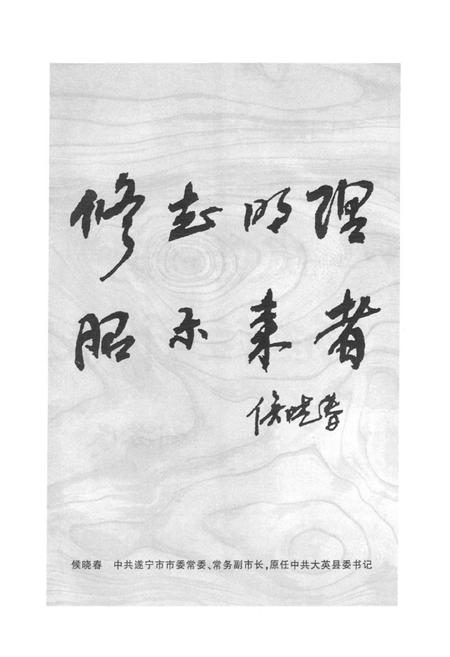 修志明理
昭示来者
侯晓春
候晓春 中共遂宁市市委常委、常务副市长,原任中共大英县委书记